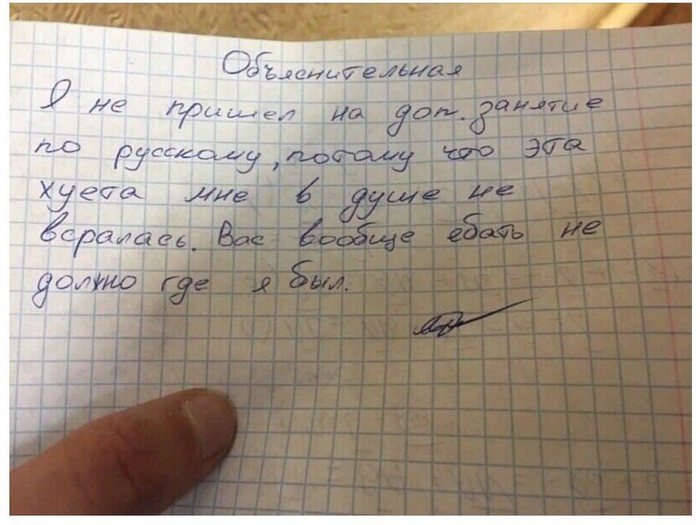 Объяснительная
Я не пришел на доп. занятие
по русскому, потому что эта
хуета мне в душе не
всралась. Вас вообще ебать не
должно где я был.